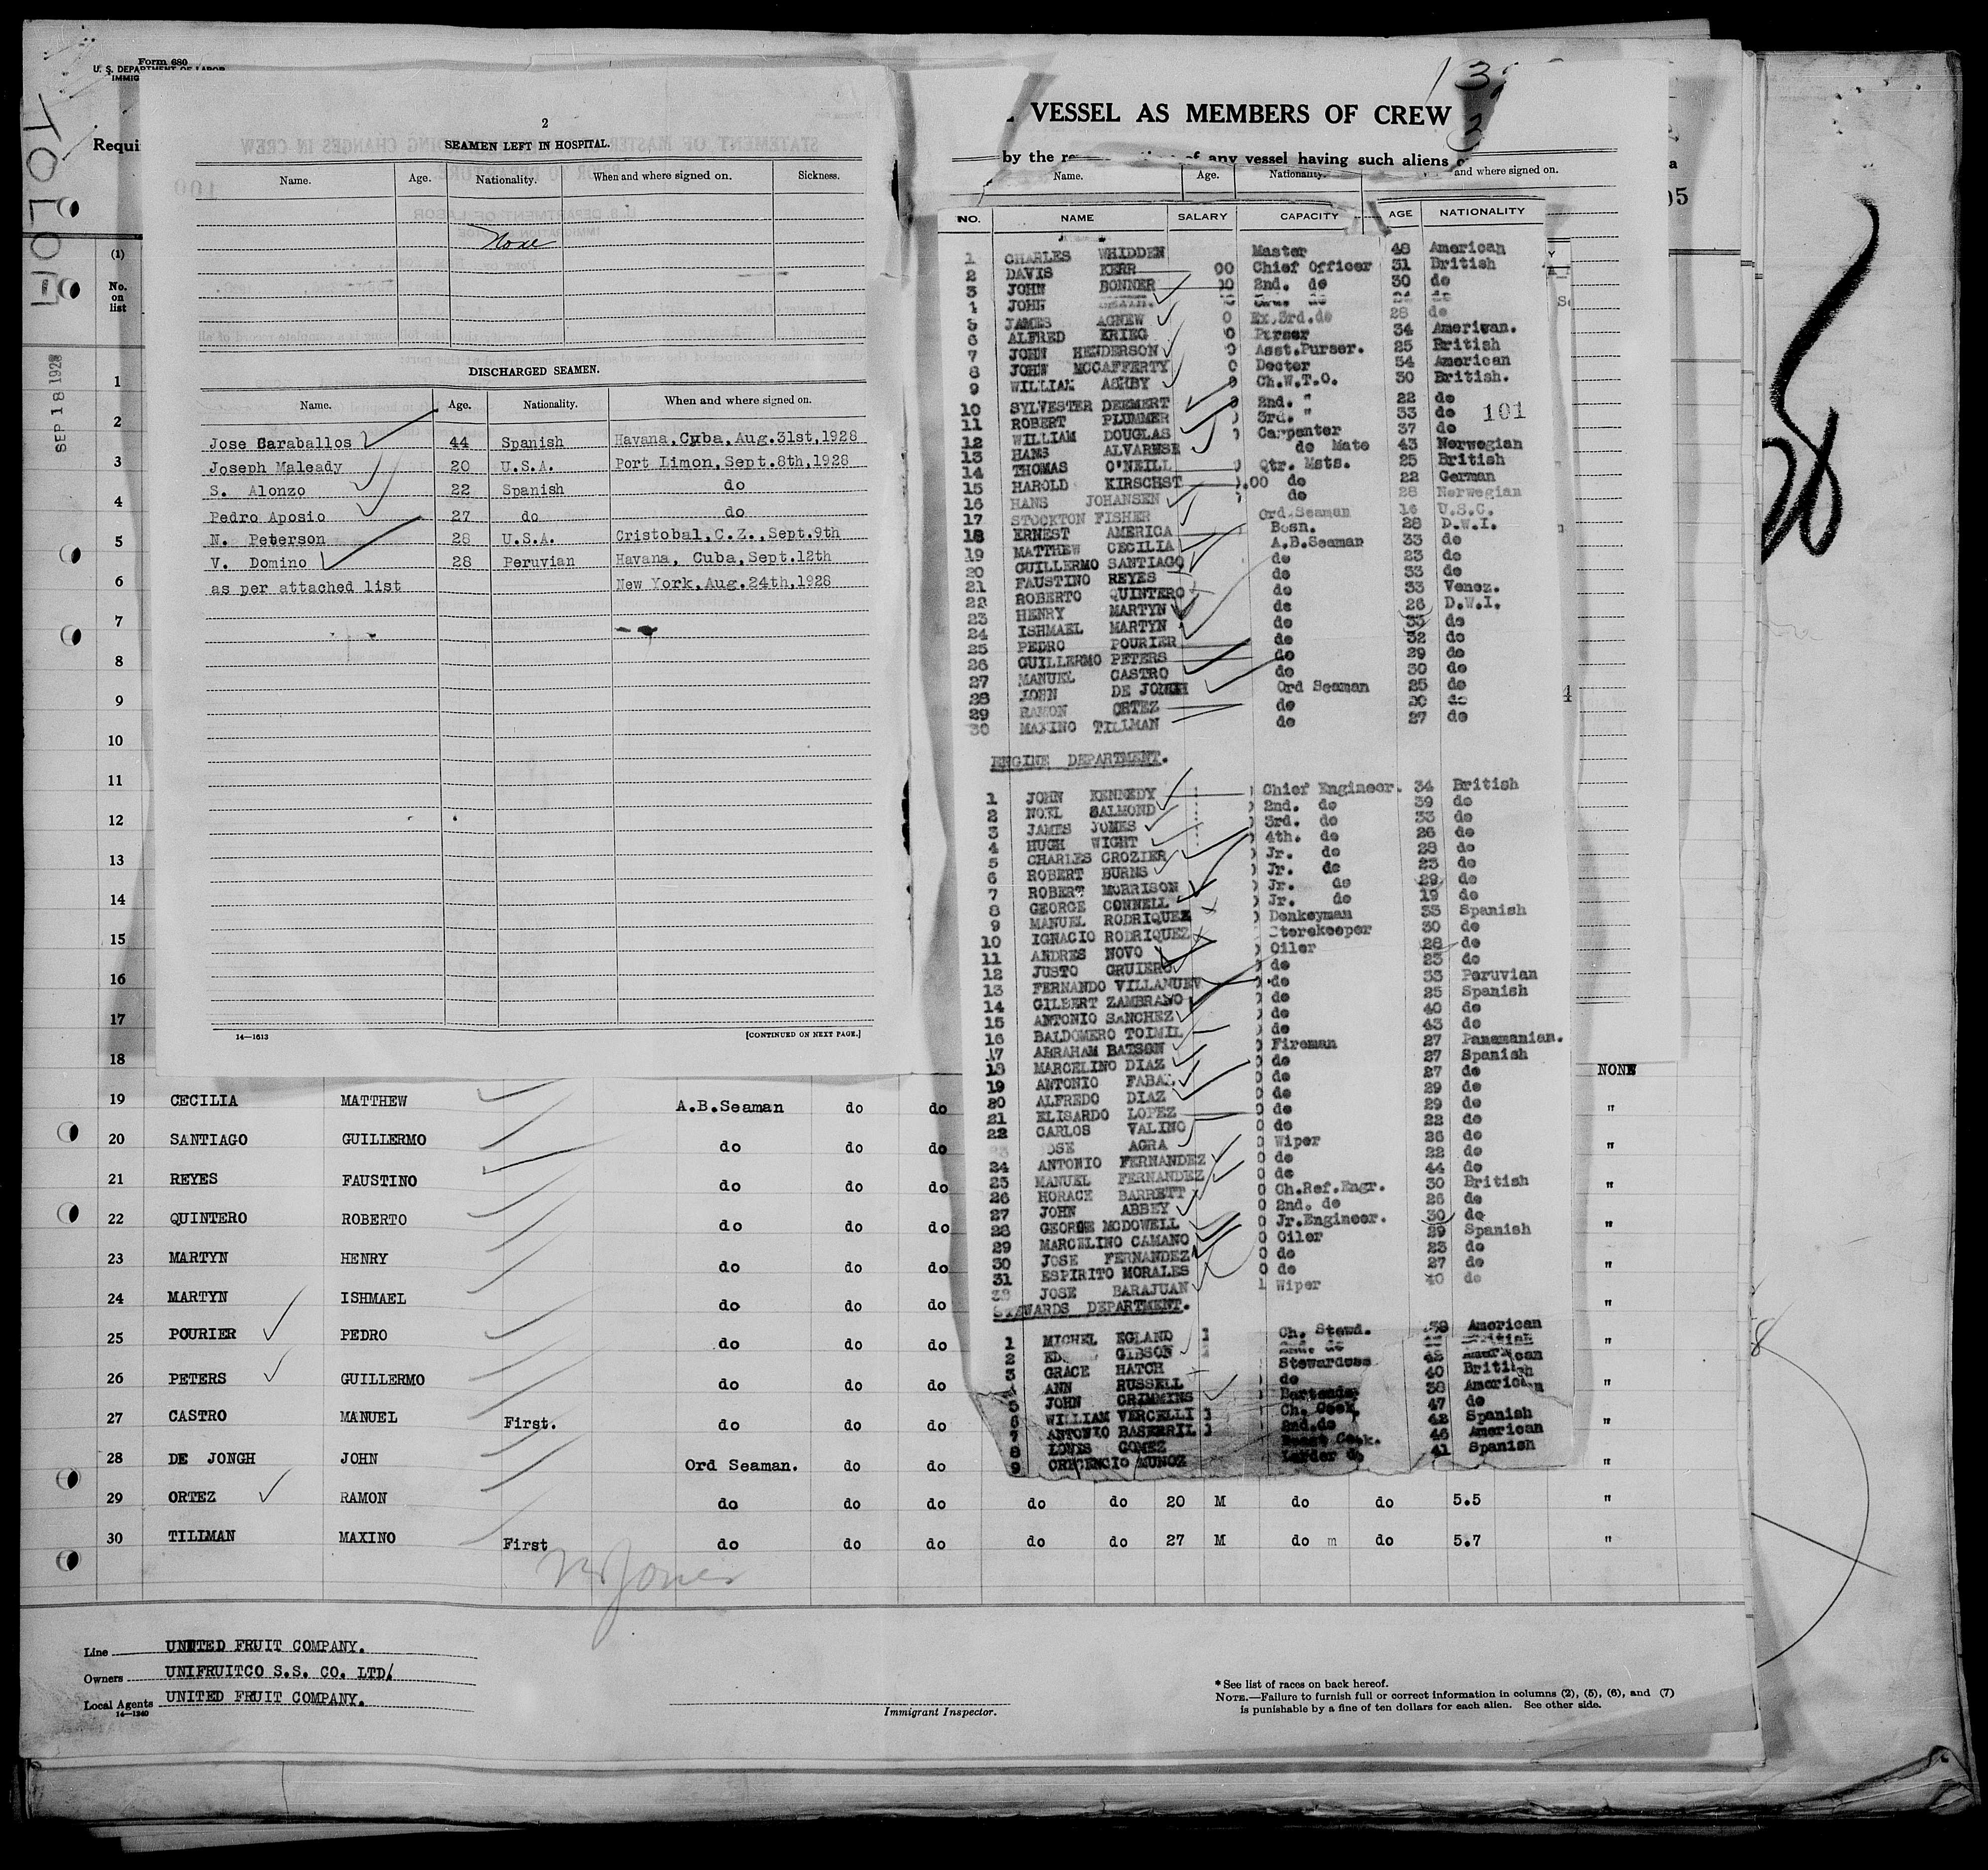 Form 680
U. S. DEPARTMENT OF LABOR
IMMIG
TOLOA
Requi
SEP 18 1928
(1)
No.
on
list
2
SEAMEN LEFT IN HOSPITAL.
Name. Age. Nationality. When and where signed on. Sickness.
None
DISCHARGED SEAMEN.
Name. Age. Nationality. When and where signed on.
Jose Caraballos 44 Spanish Havana, Cuba, Aug.31st,1928
Joseph Maleady 20 U.S.A. Port Limon, Sept.8th,1928
S. Alonzo 22 Spanish do
Pedro Aposio 27 do do
N. Peterson 28 U.S.A. Cristobal,C.Z.,Sept.9th
V. Domino 28 Peruvian Havana, Cuba,Sept.12th
as per attached list New York,Aug.24th,1928
14—1613 [CONTINUED ON NEXT PAGE.]
VESSEL AS MEMBERS OF CREW
by the of any vessel having such aliens
Name. Age. Nationality. and where signed on.
NO. NAME SALARY CAPACITY AGE NATIONALITY
1 CHARLES WHIDDEN Master 48 American
2 DAVIS KERR 00 Chief Officer 31 British
3 JOHN BONNER 00 2nd. do 30 do
4 JOHN do do
5 JAMES AGNEW 0 Ex.3rd.do 28 do
6 ALFRED KRIEG 0 Purser 34 American.
7 JOHN HENDERSON 0 Asst.Purser. 25 British
8 JOHN MCCAFFERTY 0 Doctor 54 American
9 WILLIAM ASHBY 0 Ch.W.T.O. 30 British.
10 SYLVESTER DEEMERT 2nd. " 22 do
11 ROBERT PLUMMER 3rd. " 33 do 101
12 WILLIAM DOUGLAS Carpenter 37 do
13 HANS ALVARNSE do Mate 43 Norwegian
14 THOMAS O'NEILL Qtr. Msts. 25 British
15 HAROLD KIRSCHST .00 do 22 German
16 HANS JOHANSEN do 28 Norwegian
17 STOCKTON FISHER Ord.Seaman 16 U.S.C.
18 ERNEST AMERICA Bosn. 28 D.W.I.
19 MATTHEW CECILIA A.B.Seaman 33 do
20 GUILLERMO SANTIAGO do 23 do
21 FAUSTINO REYES do 33 do
22 ROBERTO QUINTERO do 33 Venez.
23 HENRY MARTYN do 26 D.W.I.
24 ISHMAEL MARTYN do 33 do
25 PEDRO POURIER do 32 do
26 GUILLERMO PETERS do 29 do
27 MANUEL CASTRO do 30 do
28 JOHN DE JONGH Ord Seaman 25 do
29 RAMON ORTEZ do 20 do
30 MAXINO TILLMAN do 27 do
ENGINE DEPARTMENT.
1 JOHN KENNEDY Chief Engineer. 34 British
2 NOEL SALMOND 2nd. do 39 do
3 JAMES JONES 3rd. do 33 do
4 HUGH WIGHT 4th. do 26 do
5 CHARLES CROZIER Jr. do 28 do
6 ROBERT BURNS Jr. do 23 do
7 ROBERT MORRISON Jr. do 29 do
8 GEORGE CONNELL Jr. do 19 do
9 MANUEL RODRIQUEZ Donkeyman 33 Spanish
10 IGNACIO RODRIQUEZ Storekeeper 30 do
11 ANDRES NOVO Oiler 28 do
12 JUSTO GRUIERO do 23 do
13 FERNANDO VILLANUEV do 33 Peruvian
14 GILBERT ZAMBRANO do 25 Spanish
15 ANTONIO SANCHEZ do 40 do
16 BALDOMERO TOIMIL do 43 do
17 ABRAHAM BATSON Fireman 27 Panamanian.
18 MARCELINO DIAZ do 27 Spanish
19 ANTONIO FABAL do 27 do
20 ALFREDO DIAZ do 29 do
21 ELISARDO LOPEZ do 29 do
22 CARLOS VALINO do 22 do
23 JOSE AGRA Wiper 26 do
24 ANTONIO FERNANDEZ do 22 do
25 MANUEL FERNANDEZ do 44 do
26 HORACE BARRETT Ch.Ref.Engr. 30 British
27 JOHN ABBEY 2nd. do 26 do
28 GEORGE MCDOWELL Jr.Engineer. 30 do
29 MARCELINO CAMANO Oiler 29 Spanish
30 JOSE FERNANDEZ do 23 do
31 ESPIRITO MORALES do 27 do
32 JOSE BARAJUAN Wiper 40 do
STEWARDS DEPARTMENT.
1 MICHEL EGLAND Ch. Stewd. 39 American
2 GIBSON 2nd. do British
3 GRACE HATCH Stewardess 42 American
4 ANN RUSSELL do 40 British
5 JOHN CRIMMINS Bartender 38 American
6 WILLIAM VERCELLI Ch. Cook. 47 do
7 ANTONIO BASERRIL 2nd.do 42 Spanish
8 LOUIS GOMEZ Cook. 46 American
9 CRECENCIO MUNOZ Larder do 41 Spanish
1
2
3
4
5
6
7
8
9
10
11
12
13
14
15
16
17
18 NONE
19 CECILIA MATTHEW A.B.Seaman do do "
20 SANTIAGO GUILLERMO do do do "
21 REYES FAUSTINO do do do "
22 QUINTERO ROBERTO do do do "
23 MARTYN HENRY do do do "
24 MARTYN ISHMAEL do do do "
25 POURIER PEDRO do do do "
26 PETERS GUILLERMO do do do "
27 CASTRO MANUEL First. do do do "
28 DE JONGH JOHN Ord Seaman. do do "
29 ORTEZ RAMON do do do do do 20 M do do 5.5 "
30 TILLMAN MAXINO First do do do do do 27 M do m do 5.7 "
Line UNITED FRUIT COMPANY.
Owners UNIFRUITCO S.S. CO. LTD.
Local Agents UNITED FRUIT COMPANY.
14—1240
Immigrant Inspector.
* See list of races on back hereof.
NOTE.—Failure to furnish full or correct information in columns (2), (5), (6), and (7)
is punishable by a fine of ten dollars for each alien. See other side.